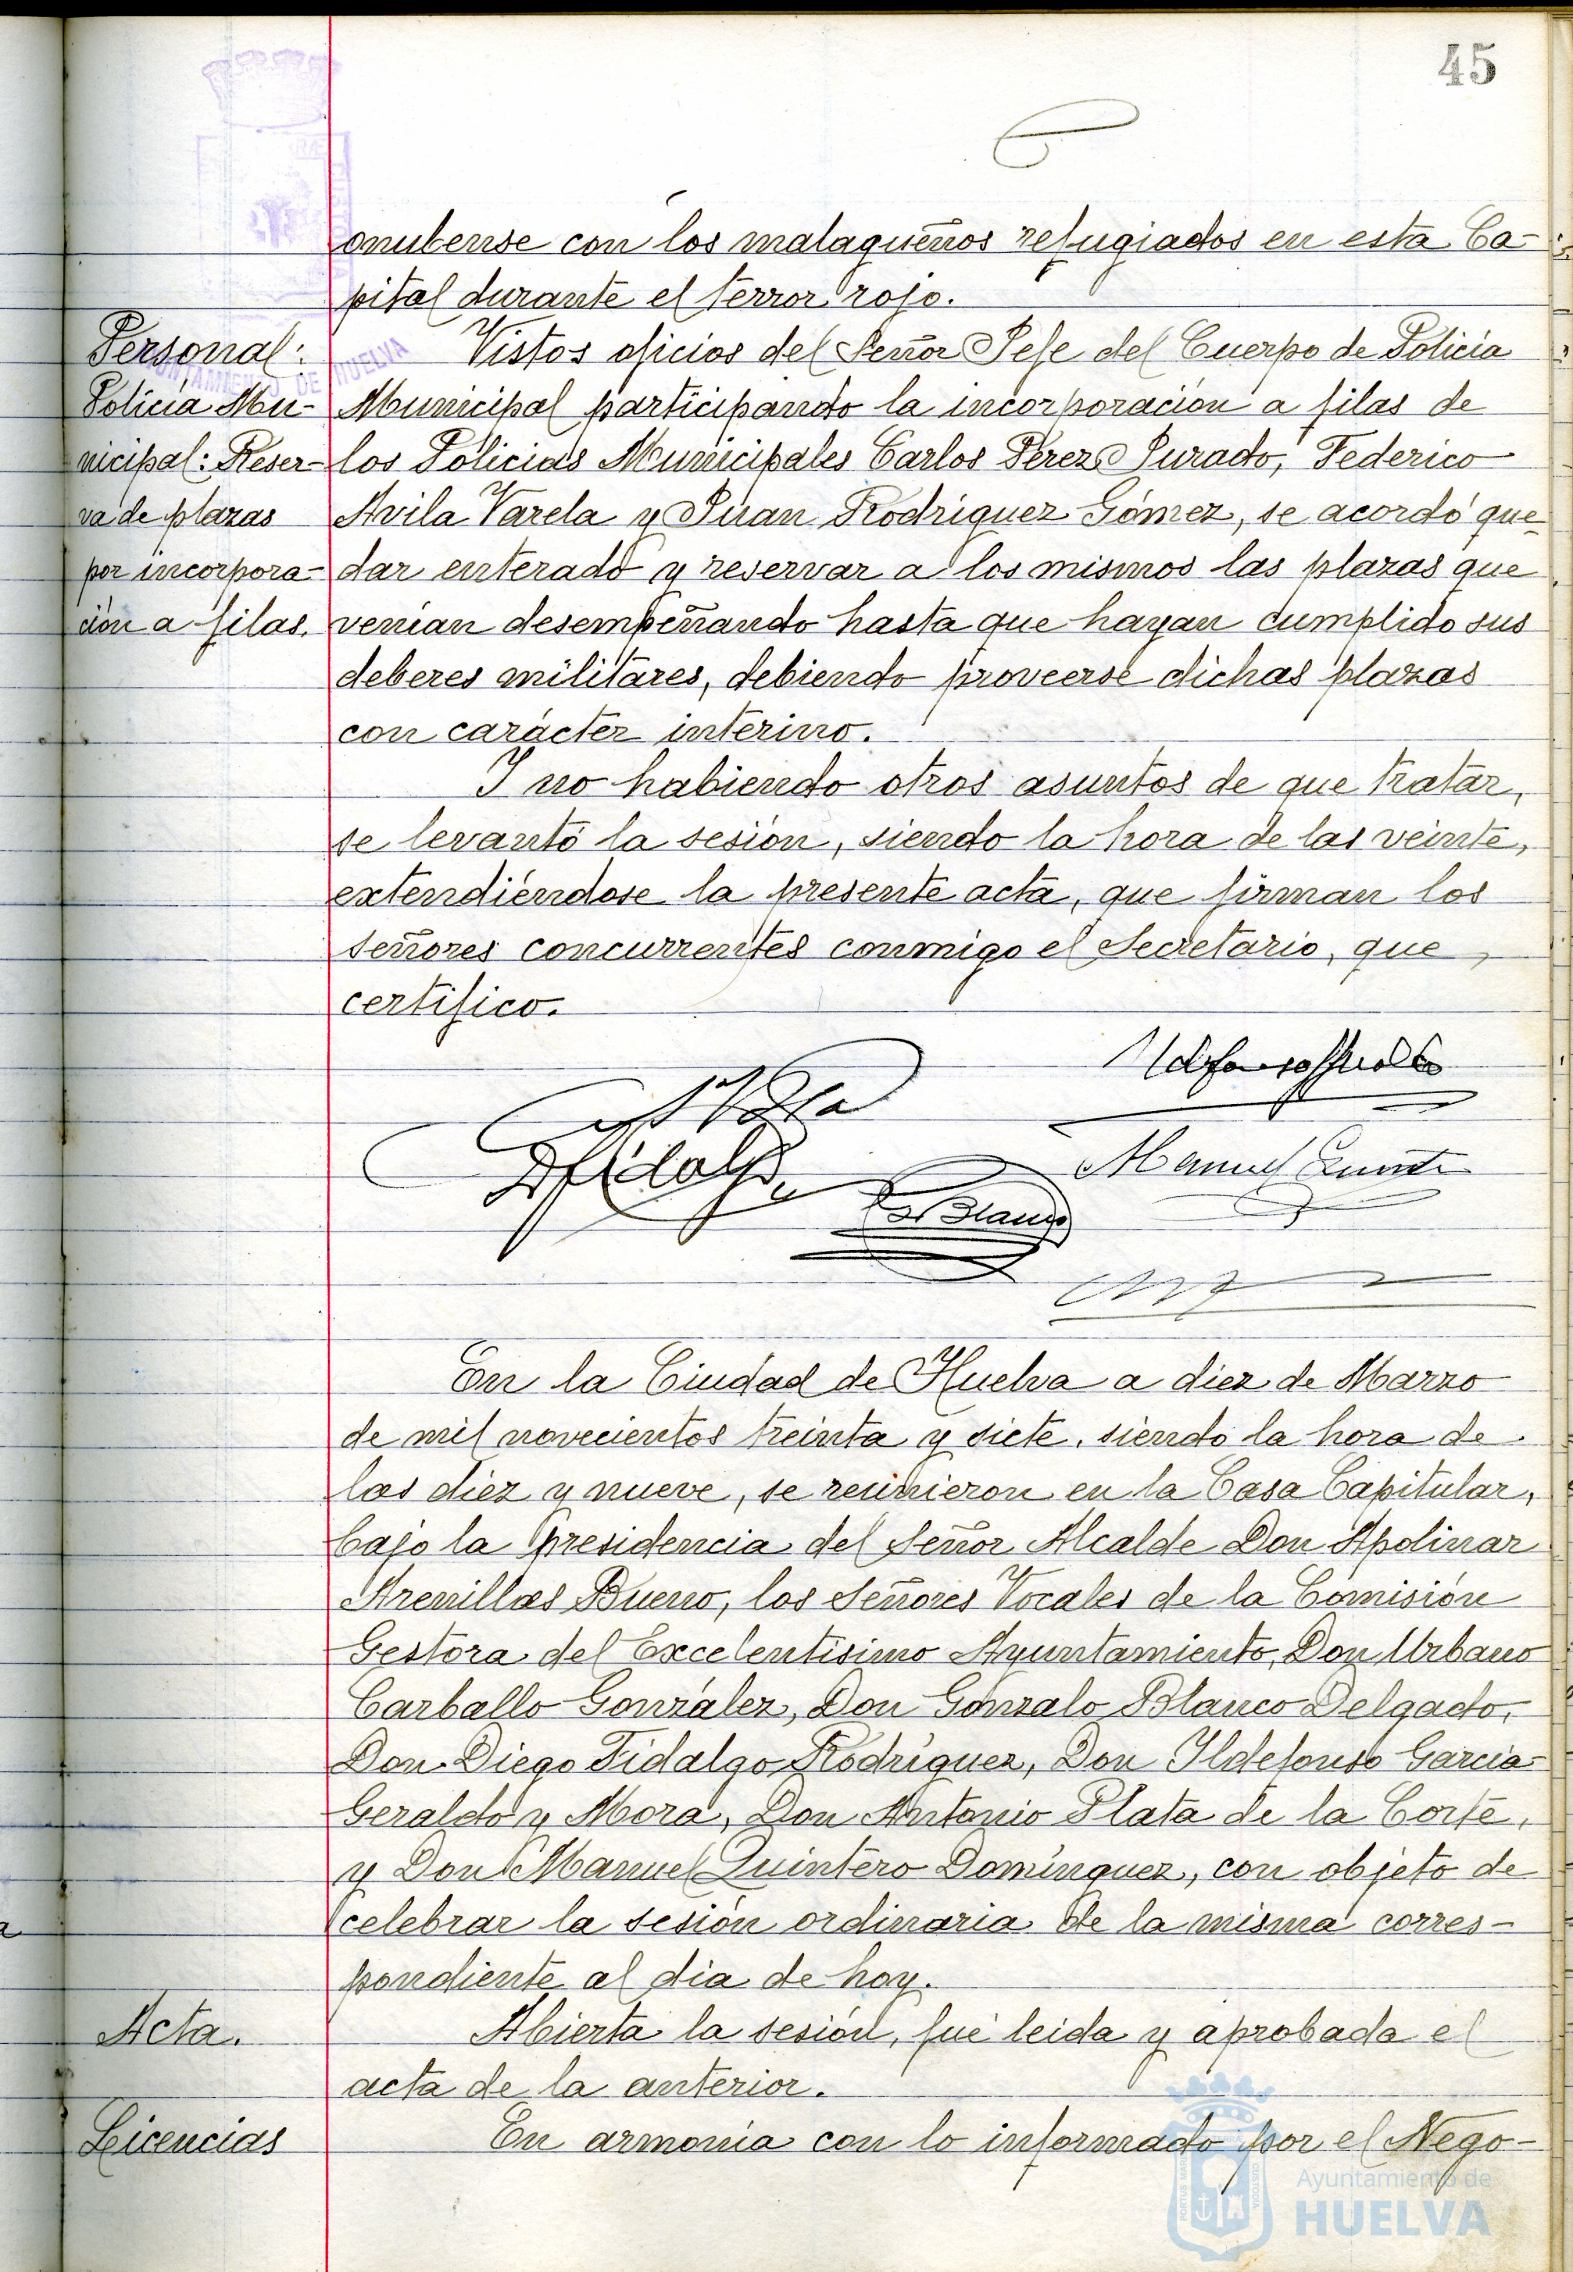 45
onubense con los malagueños refugiados en esta Ca-
pital durante el terror rojo.
Personal:
Policía Mu-
nicipal: Reser-
va de plazas
por incorpora-
ción a filas.
Vistos oficios del Señor Jefe del Cuerpo de Policía
Municipal participando la incorporación a filas de
los Policías Municipales Carlos Pérez Jurado, Federico
Avila Varela y Juan Rodríguez Gómez, se acordó que
dar enterado y reservar a los mismos las plazas que
venían desempeñando hasta que hayan cumplido sus
deberes militares, debiendo proveerse dichas plazas
con carácter interino.
Y no habiendo otros asuntos de que tratar,
se levantó la sesión, siendo la hora de las veinte,
extendiéndose la presente acta, que firman los
señores concurrentes conmigo el Secretario, que
certifico.
DFidalgo
Blanco
Manuel
En la Ciudad de Huelva a diez de Marzo
de mil novecientos treinta y siete, siendo la hora de
las diez y nueve, se reunieron en la Casa Capitular,
bajo la presidencia del Señor Alcalde Don Apolinar
Arenillas Bueno, los Señores Vocales de la Comisión
Gestora del Excelentísimo Ayuntamiento, Don Urbano
Carballo González, Don Gonzalo Blanco Delgado,
Don Diego Fidalgo Rodríguez, Don Ildefonso García-
Geraldo y Mora, Don Antonio Plata de la Corte,
y Don Manuel Quintero Domínguez, con objeto de
celebrar la sesión ordinaria de la misma corres-
pondiente al día de hoy.
Acta.
Abierta la sesión, fué leida y aprobada el
acta de la anterior.
Licencias
En armonía con lo informado por el Nego-
Ayuntamiento de
HUELVA